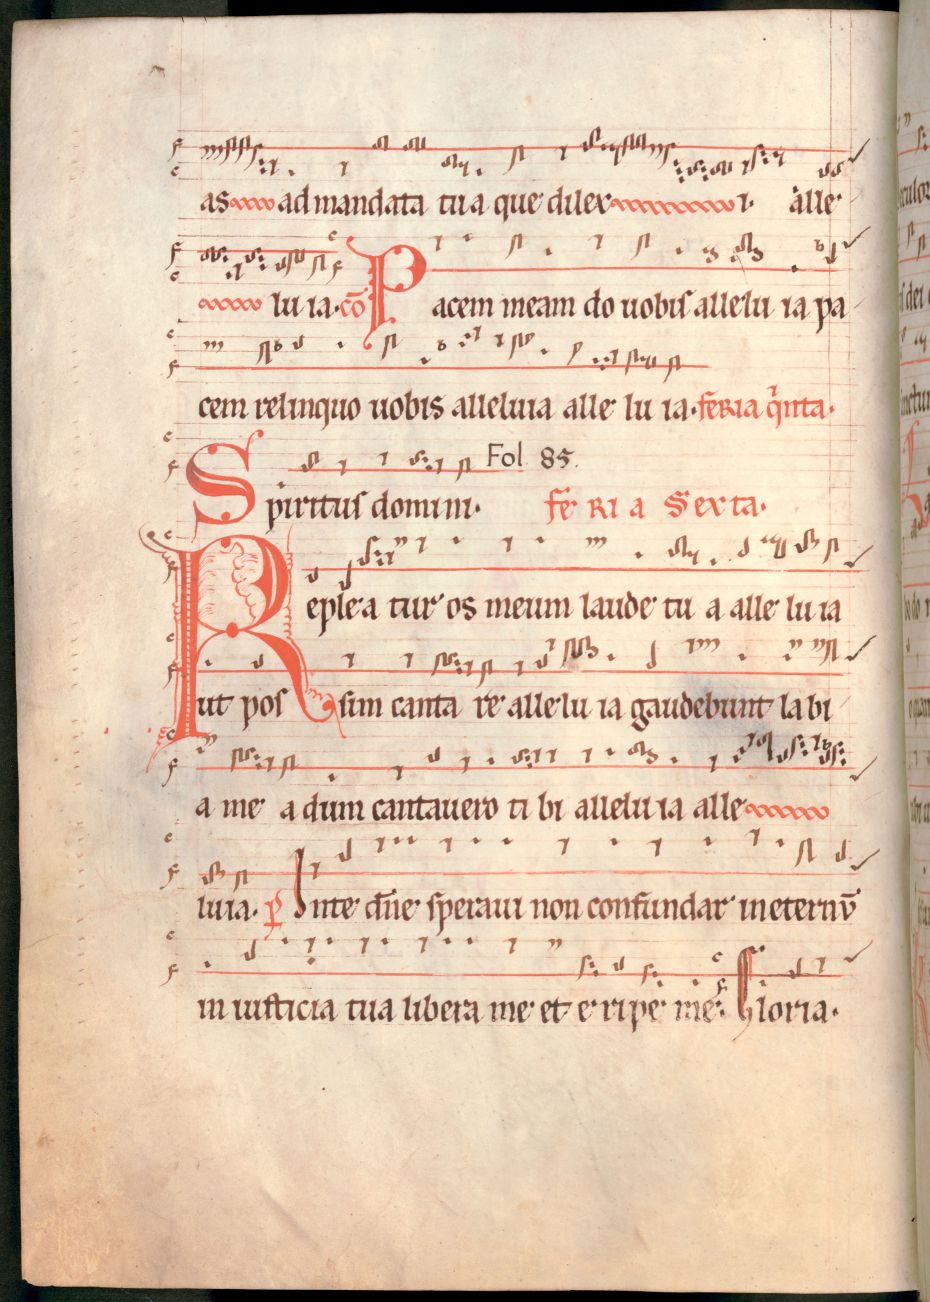 as ad mandata tua que dilex i. alle
lu ia. cō Pacem meam do uobis allelu ia pa
cem relinquo uobis alleluia alle lu ia. feria q̍nta.
Fol 85.
Spiritus domini. fe ri a Sexta.
Replea tur os meum laude tu a alle lu ia
ut pos sim canta re allelu ia gaudebunt labi
a me a dum cantauero ti bi allelu ia alle
luia. p̄ Inte dn̄e speraui non confundar in eternū
in iusticia tua libera me et e ripe me. Gloria.